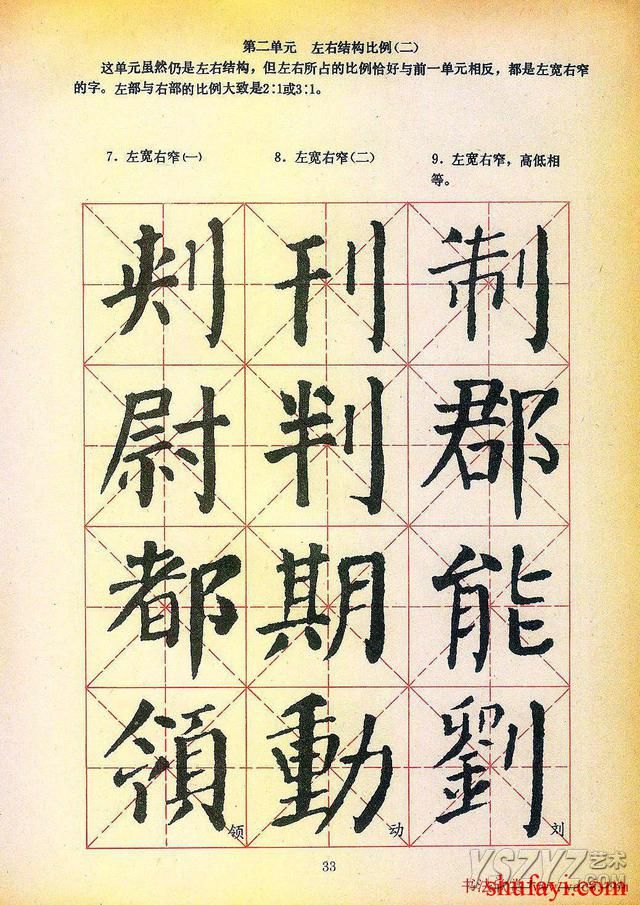 第二单元 左右结构比例(二)
这单元虽然仍是左右结构，但左右所占的比例恰好与前一单元相反，都是左宽右窄
的字。左部与右部的比例大致是2∶1或3∶1。
7．左宽右窄(一)
8．左宽右窄(二)
9．左宽右窄，高低相
等。
刾 刊 制
尉 判 郡
都 期 能
領 動 劉
领 动 刘
33
YSZYZ艺术